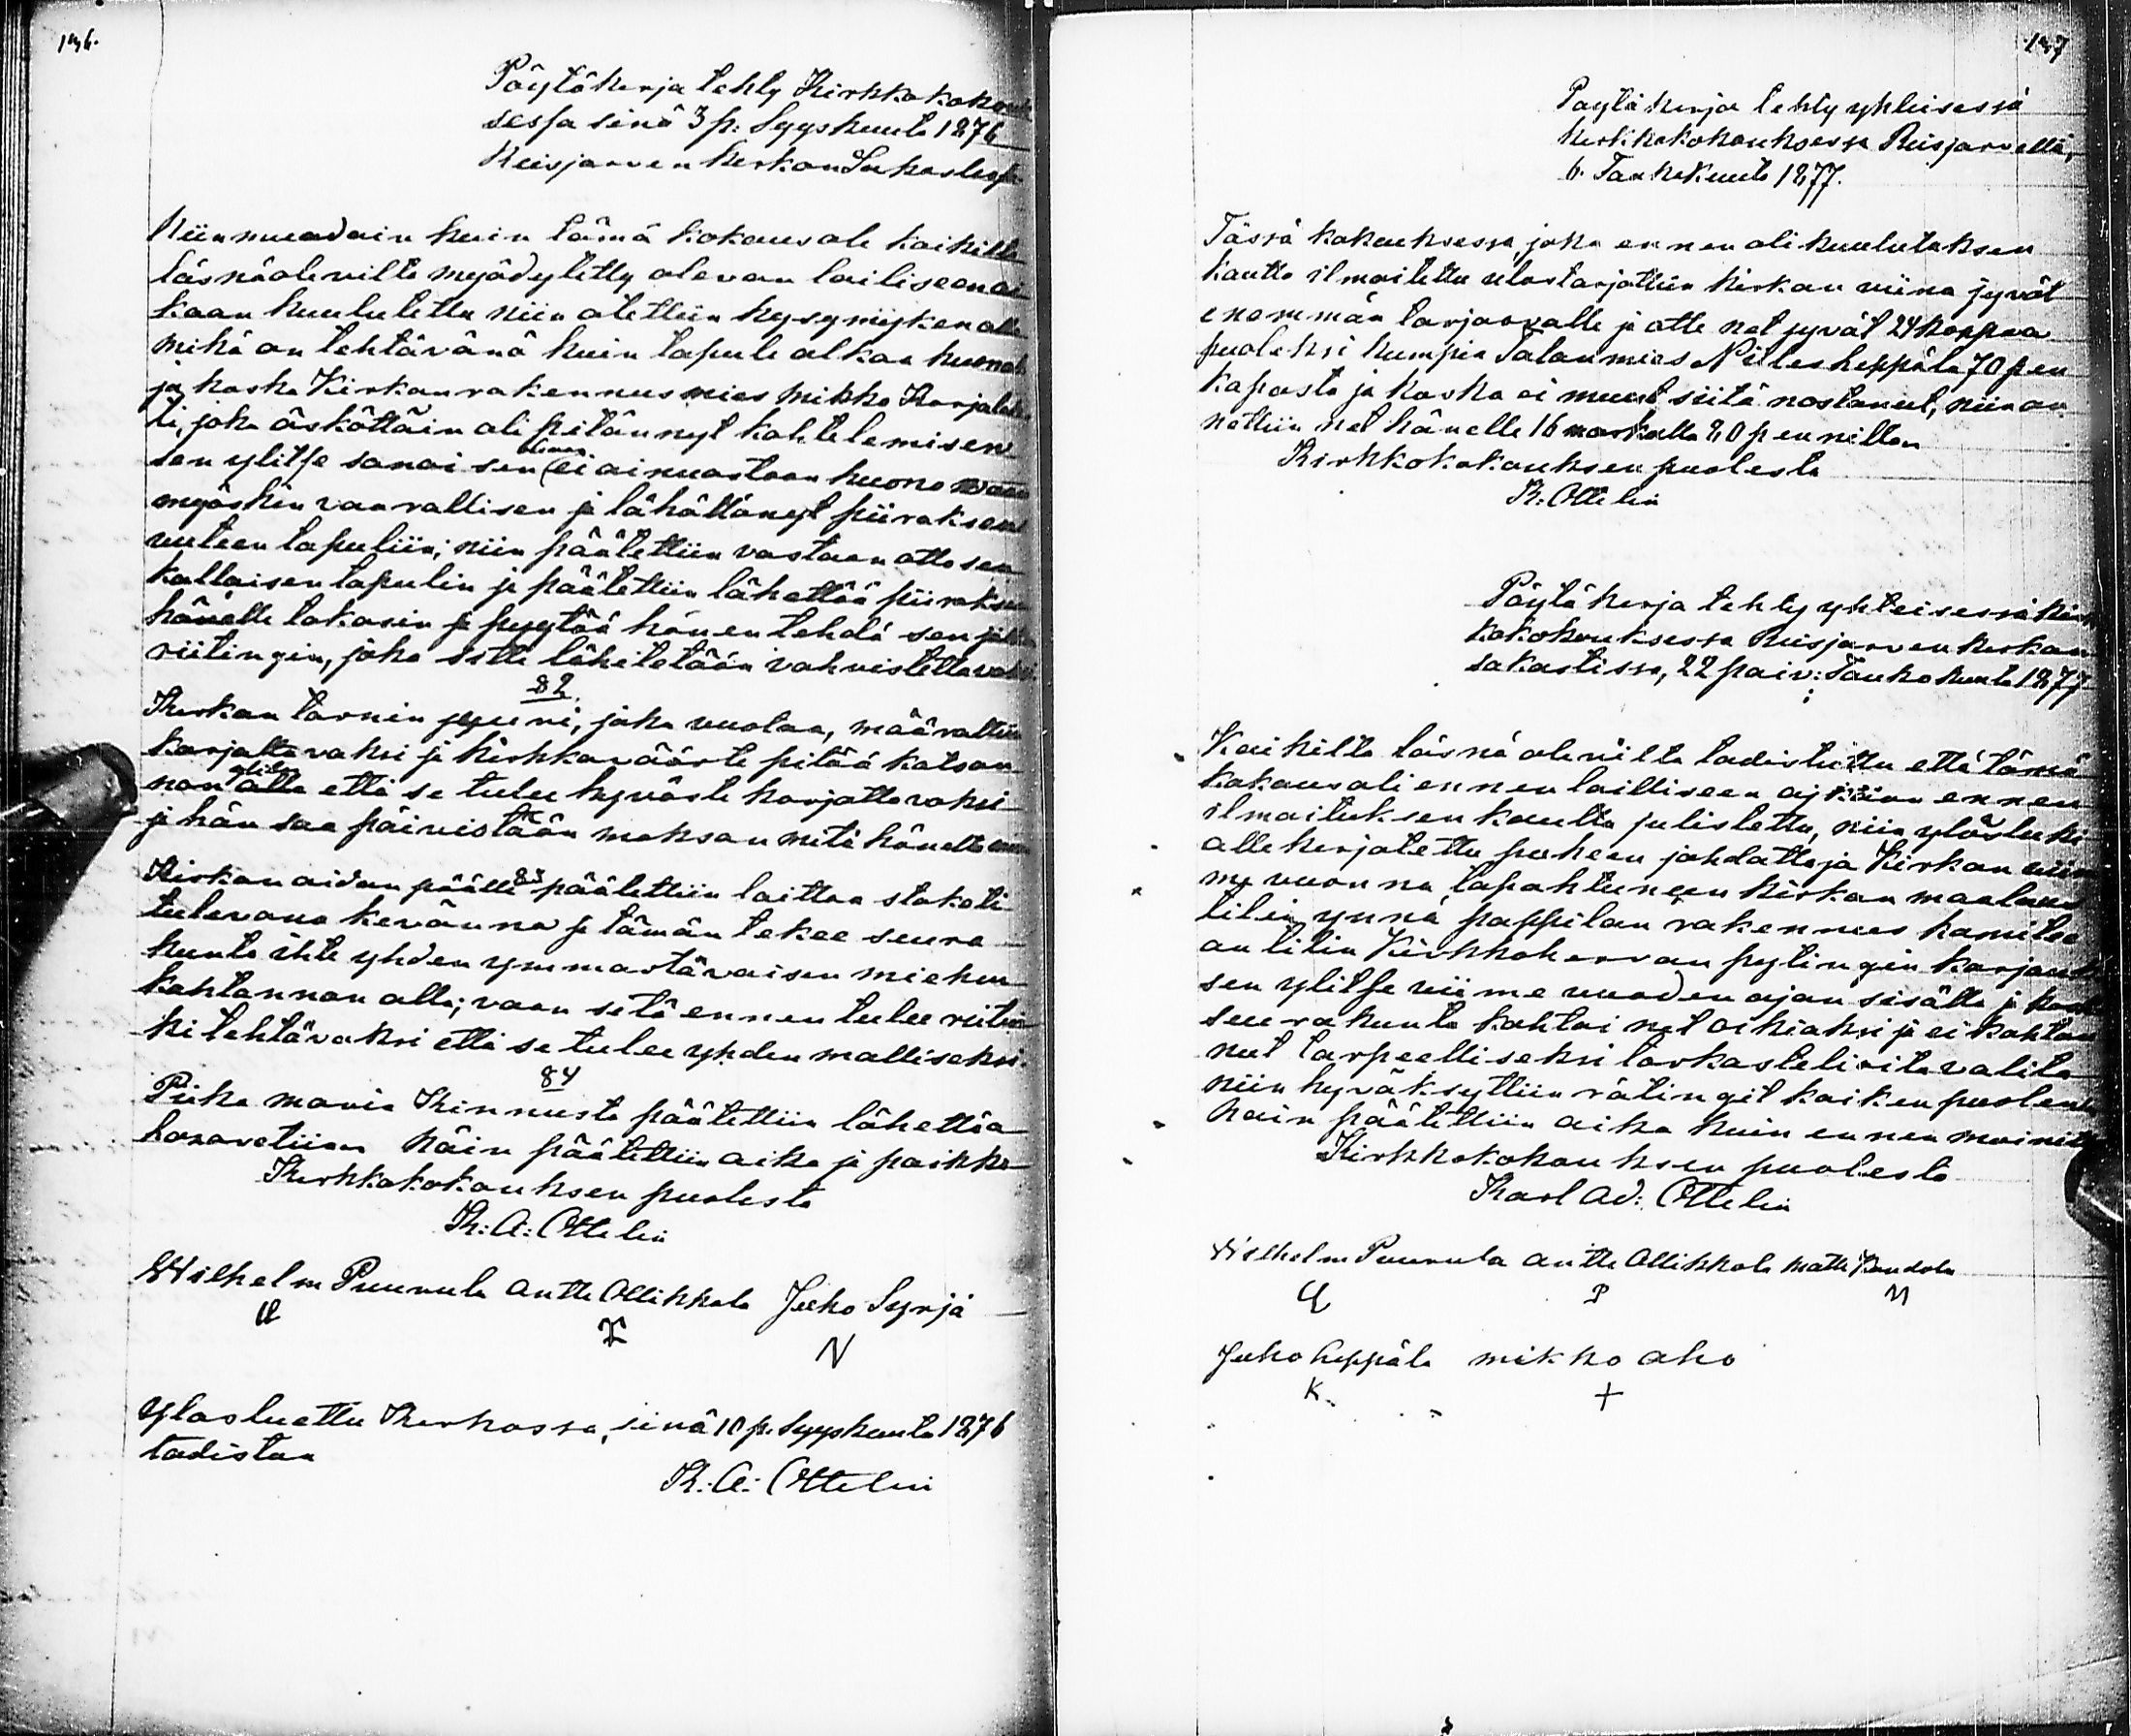 146.
Pöytäkerja tehty Kirkkokokouk
sessa sinä 3 p: Syyskuuta 1876
Reisjarven kerkon Sakastissa
Niinmuodoin kuin tämä kokous ole kaikilta
läsnäolevilta myödytetty olevan lailiseen ai
kaan kuulutettu niin otettiin kysymyksen alle
mikä on tehtävänä kuin tapuli alkaa huonot
ja koska Kirkonrakennusmies Mikko Karjalah
ti, joka äskättäin oli pitännyt kahtelemisen
sen ylitse sanoi sen olevan ei ainuastaan huono vaan
myöskin vaarallisen ja lähättänyt piiraksen
uuteen tapuliin; niin päätettiin vastaan otto sen
kallaisen tapulin ja päätettiin lähettää piiraksen
hänelle takasin ja pyytää hänen tehdä sen jälk
riitingin, joka sitte lähitetään vahvistettavaksi
82.
Kerkon tornin joka vuotaa, määrattiin
karjattavaksi ja kirkkoväärte pitää katson
non alla että se tulee hyväste korjattavaksi
ja hän saa päivistään maksan mitä hänelle
83
Kirkon aidan päälle päätettiin laittaa staketi
tulevana kevännä ja tämän tekee seura
kunta ihte yhden ymmartäväisen miehen
kahtannon alla; vaan sitä ennen tulee riitin
ki tehtäväksi että se tulee yhden malliseksi.
84
Piika Maria Kinnusta päätettiin lähettää
lasaretiian Näin päätettiin aika ja paikka
Kerkkokokouksen puolesta
K: A: Ottelin
Wilhelm Puurula Antti Ollikkala Juho Syrjä
N
Ylosluettu Kerkossa, sinä 10 p. Syyskuuta 1876
todistaa
K: A: Ottelin
147
Poytäkerja tehty yhteisessä
kerkkokokouksessa Reisjarvellä,
6. Taukokuuta 1877.
Tässä kokouksessa, joka ennen oli kuulutuksen
kautta ilmoitettu ulostarjottiin kirkon viina jyvät
enemmän tarjoovalle ja otte net jyvät 24 kappaa
puoleksi kumpia Talonmies Nilles Leppälä 70 pen
kapasta ja koska ei muut siitä nostaneet, niin an
nettiin net hänelle 16 markalla 80 pennillan
Kirkkokokouksen puolesta
K: Ottelin
Pöytäkerja tehty yhteisessä kirk
kokokouksessa Reisjarven kerkon
sakastissa, 22 paiv: Taukokuuta 1877
Kaikilta läsnä olevilta todistettu että tämä
kokous oli ennen lailliseen aikaan ennen
ilmoituksen kautta julistettu, niin ylösluki
allekerjotettu puheen johdattaja Kirkon viim
me vuonna tapahtuneen kirkon maalaus
tilin ynnä pappilan rakennus kamitee
an tilin Kirkkoherran pytingin karjauk
sen ylitse viime vuoden ajan sisälle ja koska
seurakunta kahtoi net oikiaksi ja ei kahton
nut tarpeelliseksi tarkastelioita valita
niin hyväksyttiin rätingit kaiken puolen
Nain päätettiin aika kuin ennen mainittu
Kirkkokokouksen puolesta
Karl Ad: Ottelin
Wilhelm Puurula Antti Ollikkala Matti Kandola
P M
Juho Leppälä Mikko Aho
K. +